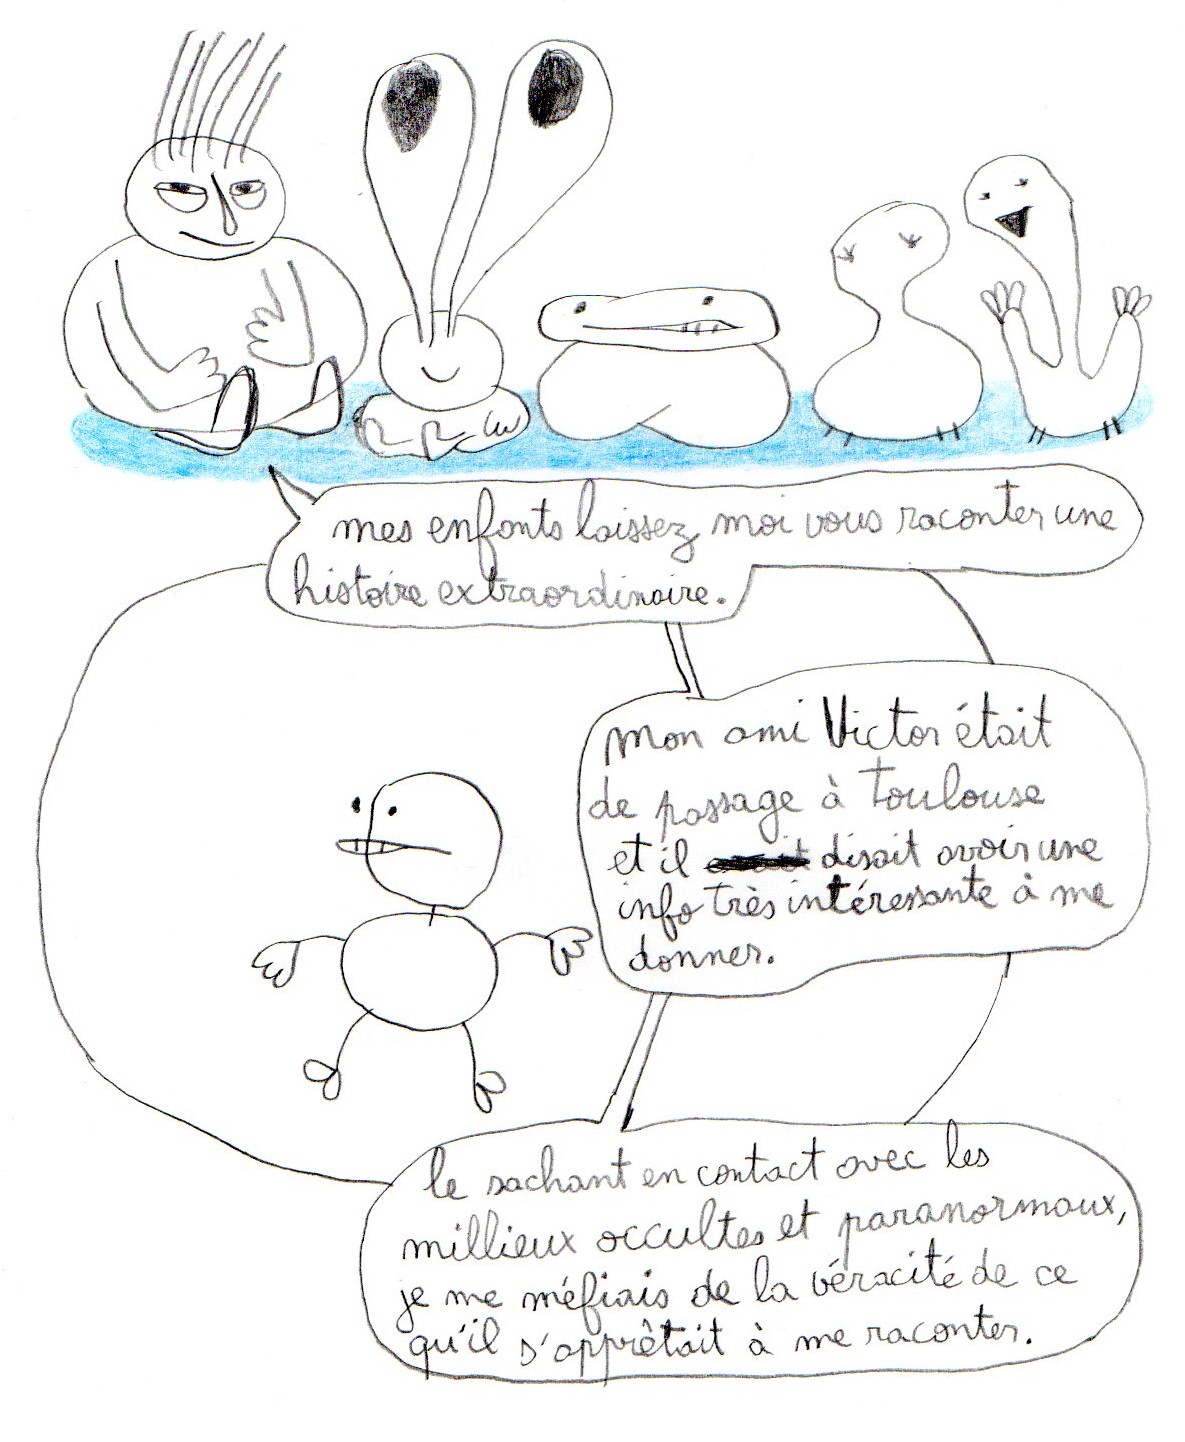 mes enfants laissez moi vous raconter une
histoire extraordinaire.
mon ami Victor était
de passage à Toulouse
et il disait avoir une
info très intéressante à me
donner.
le sachant en contact avec les
millieux occultes et paranormaux,
je me méfiais de la véracité de ce
qu'il s'apprêtait à me raconter.